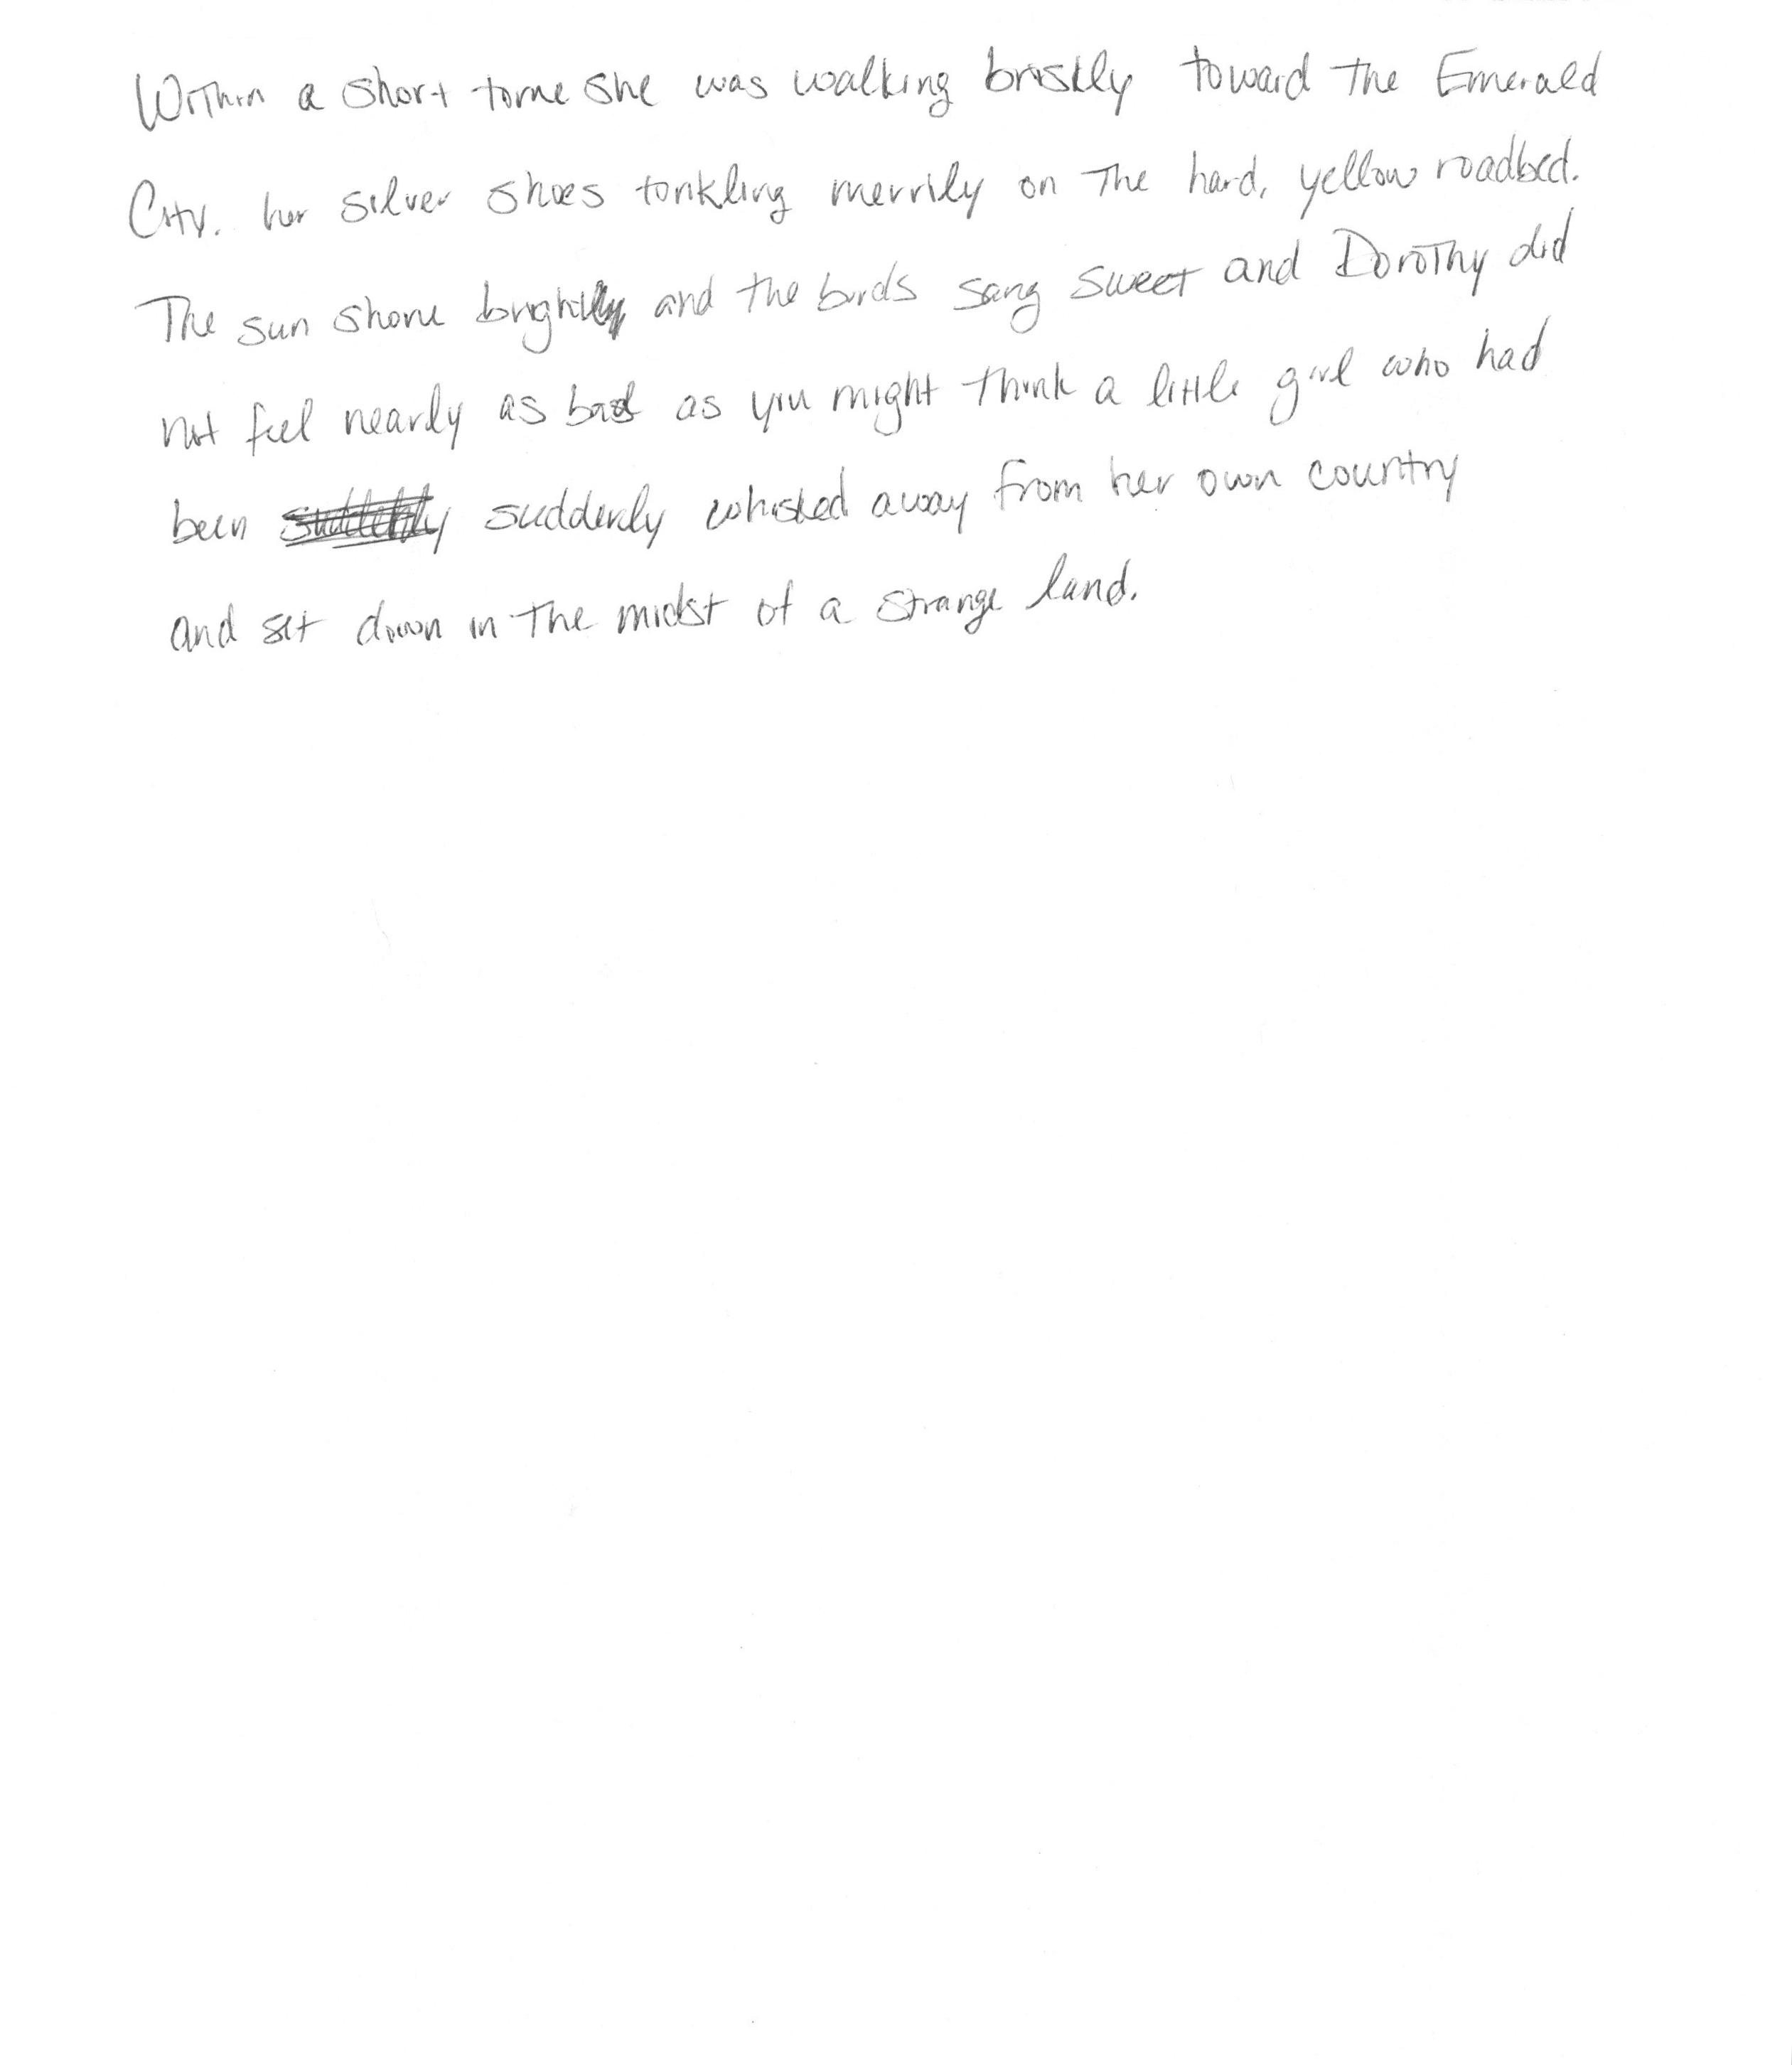 Within a short time she was walking briskly toward the Emerald
City. her silver shoes tinkling merrily on the hard, yellow roadbed.
The sun shone brightly and the birds sang sweet and Dorothy did
not feel nearly as bad as you might think a little girl who had
been suddenly whisked away from her own country
and set down in the midst of a strange land.